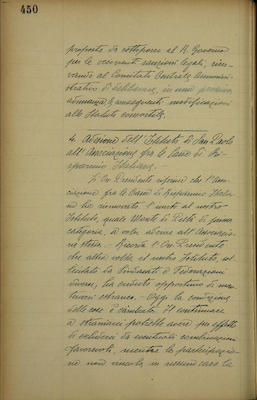 450
proposte da sottoporre al R. Governo
per le occorrenti sanzioni legali, rice-
vendo al Comitato Centrale Ammini-
strativo di deliberare, in una prossima
adunanza, le conseguenti modificazioni
allo Statuto consortile.
4. Adesione dell'Istituto di San Paolo
all'Associazione fra le Casse di Ri-
sparmio Italiane.
L'On. Presidente riferisce che l'Asso-
ciazione fra le Casse di Risparmio Italia-
ne ha rinnovato l'invito al nostro
Istituto, quale Monte di Pietà di prima
categoria, a voler aderire all'Associazio-
ne stessa. - Ricorda l'On. Presidente
che altra volta il nostro Istituto, sol-
lecitato da Sindacati e Federazioni
diverse, ha creduto opportuno di man-
tenersi estraneo. - Oggi la condizione
delle cose è cambiata. Il continuare
a straniarsi potrebbe avere per effetto
di escludersi da eventuali combinazioni
favorevoli, mentre la partecipazio-
ne non vincola in nessun caso la